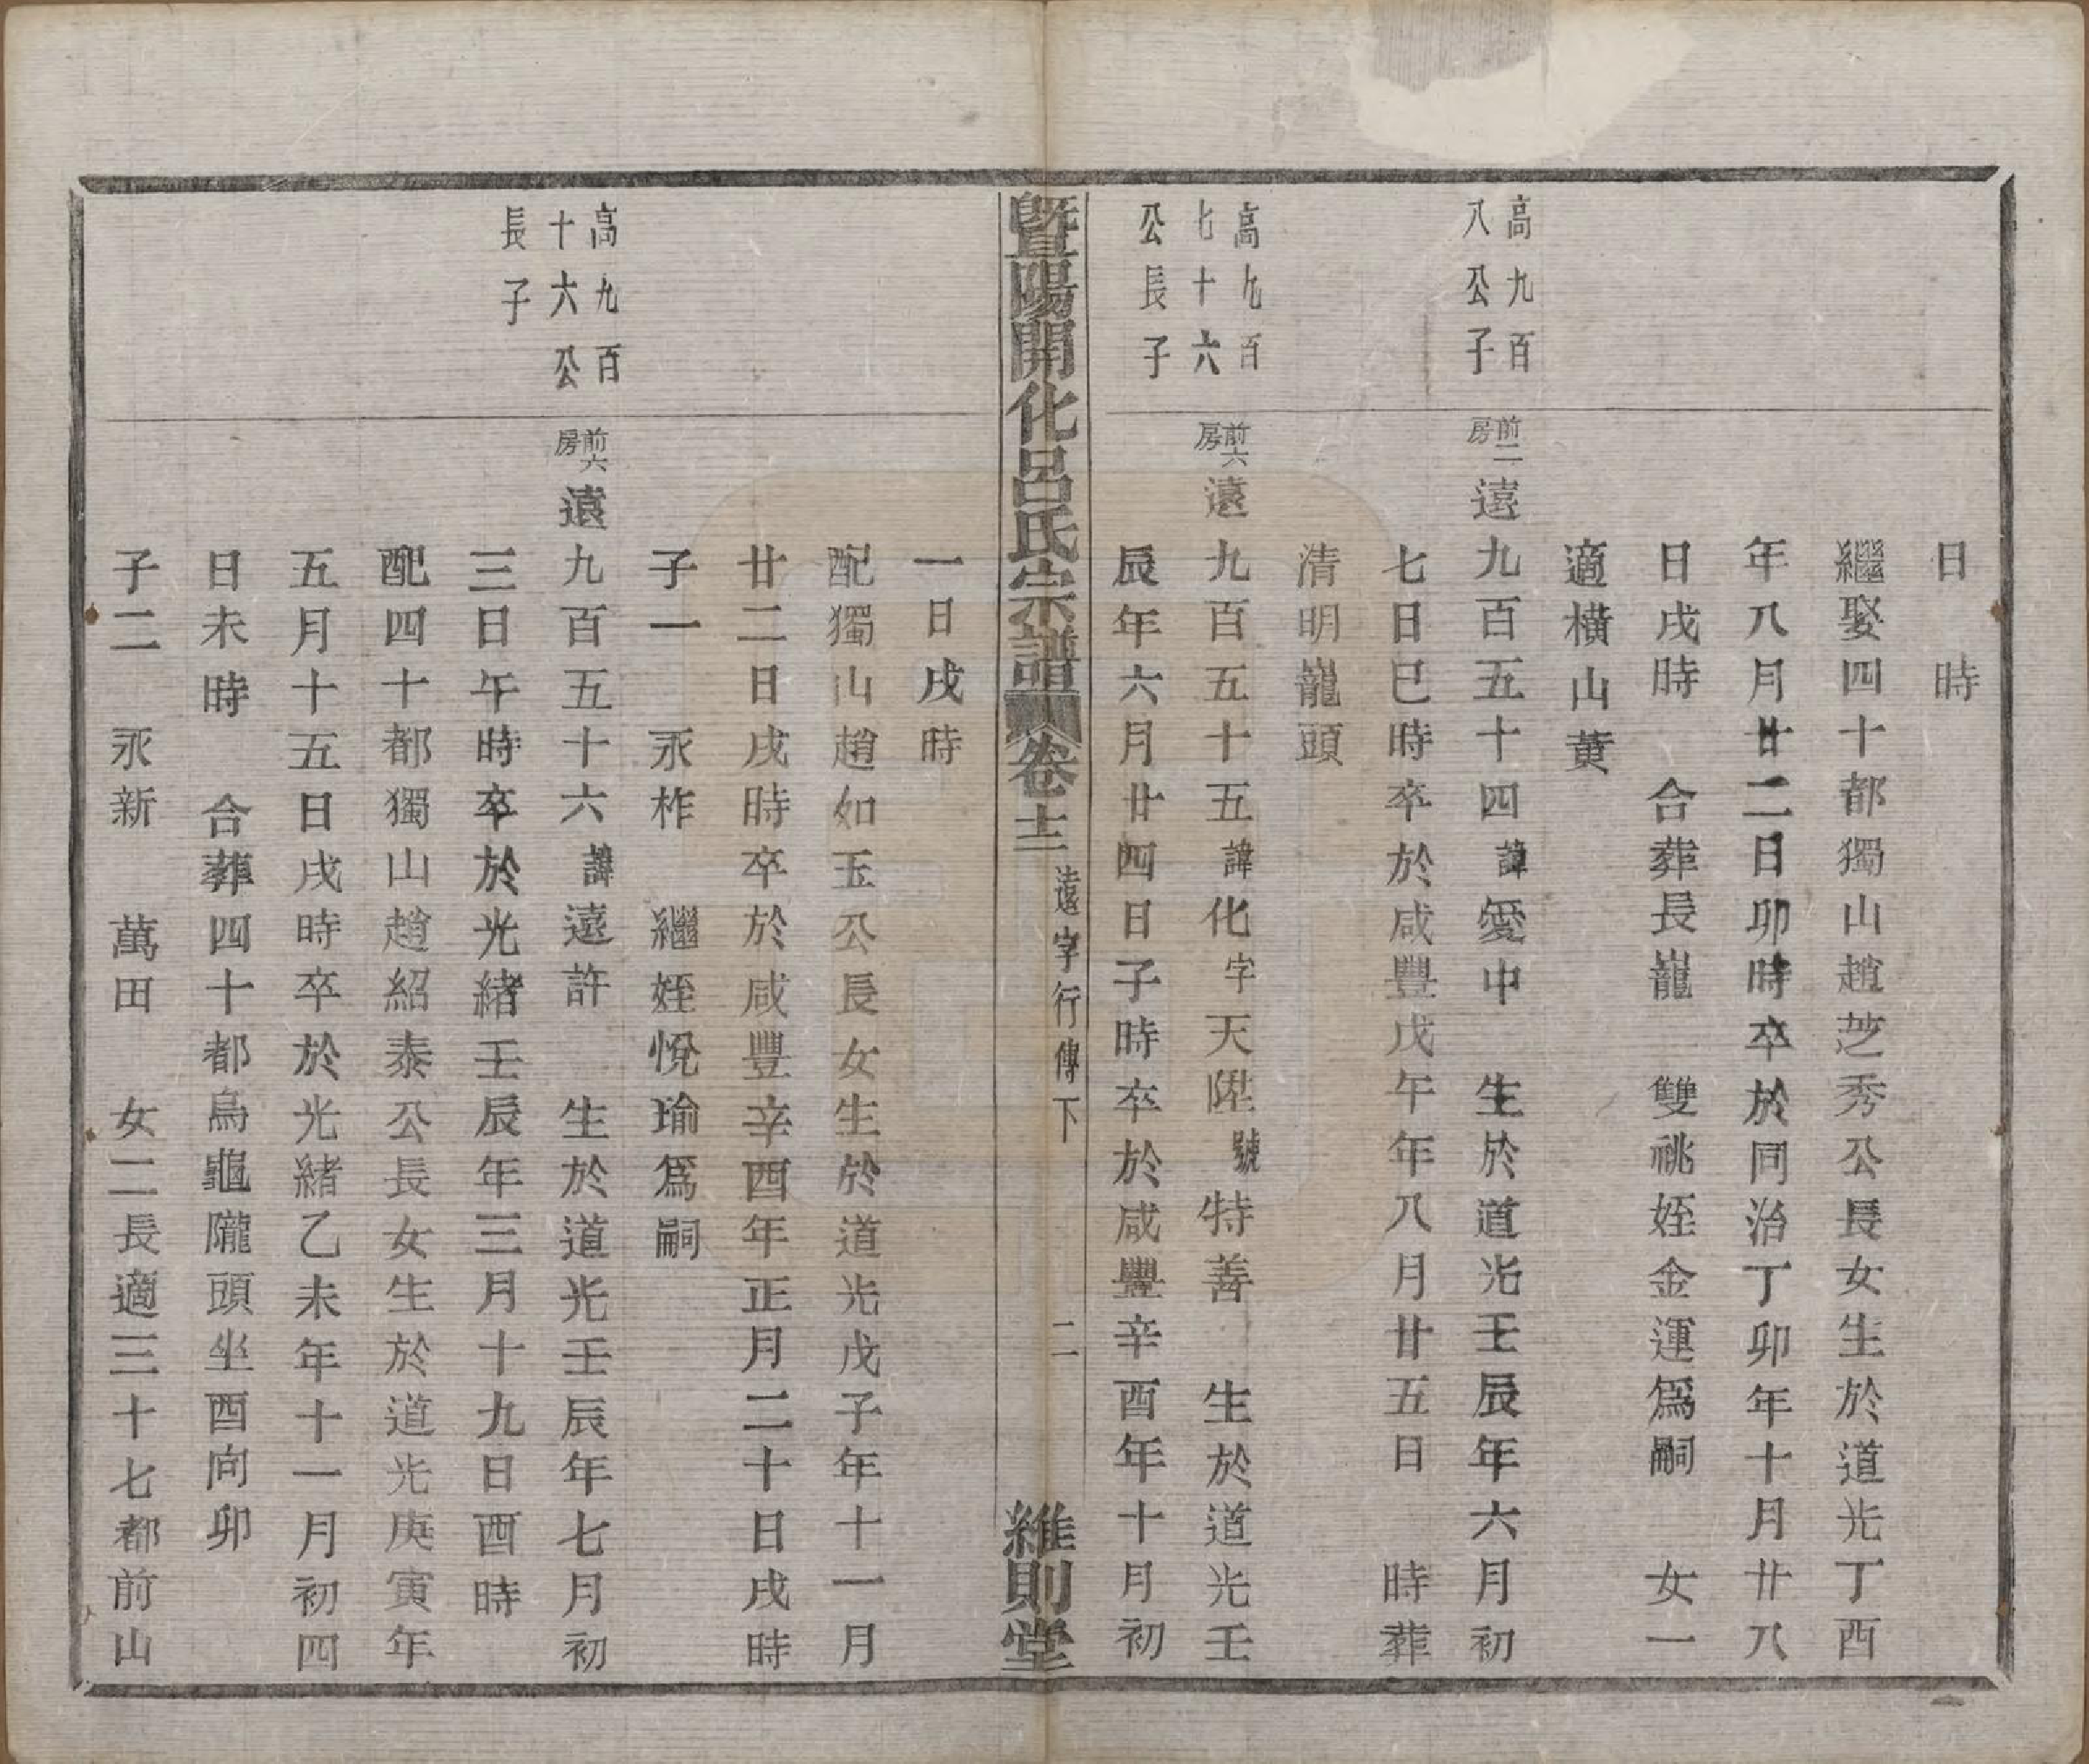 日　時
繼娶四十都獨山趙芝秀公長女生於道光丁酉
年八月廿二日卯時卒於同治丁卯年十月廿八
日戌時　合葬長巃　雙祧姪金運爲嗣　女一
適橫山黄
高九百
八公子
前二
房
遠九百五十四諱愛中　生於道光壬辰年六月初
七日巳時卒於咸豐戊午年八月廿五日　時葬
清明巃頭
高九百
七十六
公長子
前六
房
遠九百五十五諱化字天陞號特善　生於道光壬
辰年六月廿四日子時卒於咸豐辛酉年十月初
暨陽開化呂氏宗譜　卷十二　遠字行傳下　二　維則堂
一日戌時
配獨山趙如玉公長女生於道光戊子年十一月
廿二日戌時卒於咸豐辛酉年正月二十日戌時
子一　永柞　繼姪悅瑜爲嗣
高九百
十六公
長子
前六
房
遠九百五十六諱遠許　生於道光壬辰年七月初
三日午時卒於光緒壬辰年三月十九日酉時
配四十都獨山趙紹泰公長女生於道光庚寅年
五月十五日戌時卒於光緒乙未年十一月初四
日未時　合葬四十都烏龜隴頭坐酉向卯
子二　永新　萬田　女二長適三十七都前山